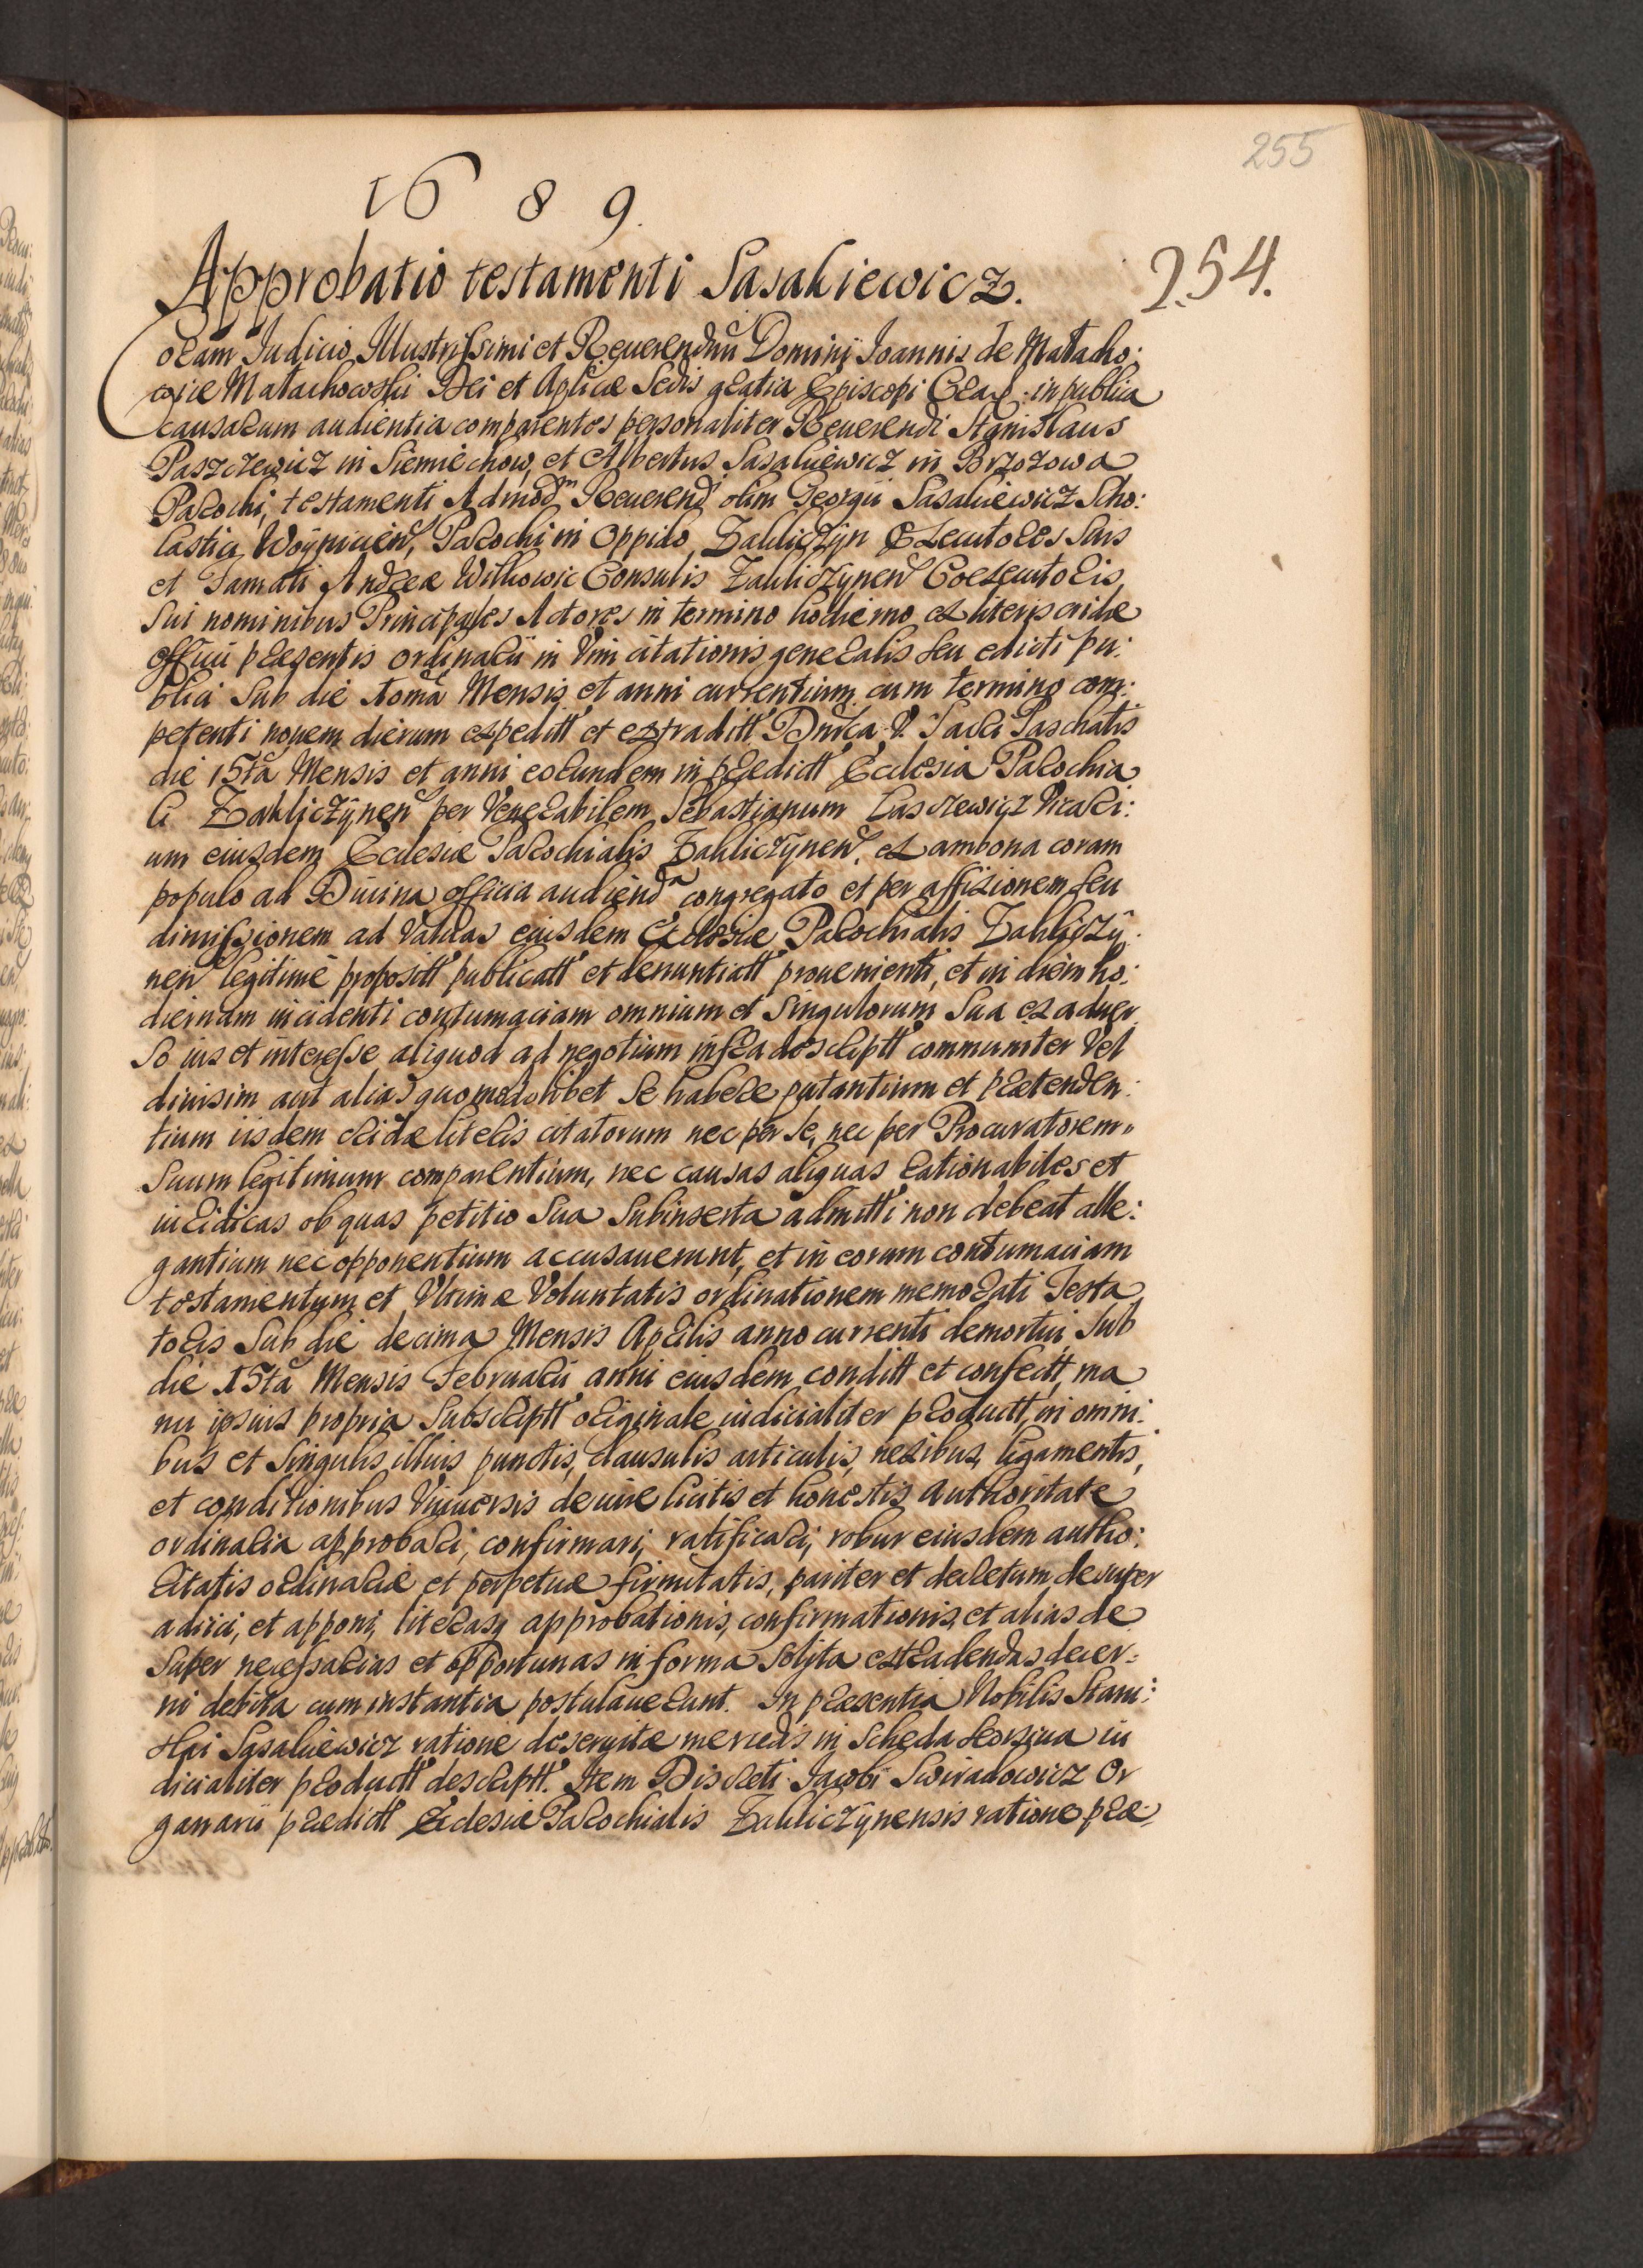 255
1689.
Approbatio testamenti Sasakiewicz.
254.
Coram Judicio Illustrissimi et Reuerendm̃i Domini Joannis de Małacho:
wice Małachowski Dei et Aplicae Sedis gratia Episcopi Crac: in publica
causarum audientia comparentes personaliter Reuerendi Stanislaus
Paszczewicz in Siemiechow, et Albertus Sasakiewicz in Brzozowa
Parochi, testamenti Admodm Reuerend olim Georgii Sasakiewicz Scho:
lastici Woynicieñ, Parochi in Oppido Zakliczyn Executores suis
et Famati Andreae Witkowic Consulis Zakliczyneñ Coexecutoris
sui nominibus Principales Actores in termino hodierno ex literis cridae
officii praesentis ordinarii in vim citationis generalis seu edicti pu:
blici sub die nona Mensis et anni currentium cum termino com:
petenti nouem dierum expeditt et extraditt Dnica V. Sacri Paschatis
die 15ta Mensis et anni eorundem in praedictt Ecclesia Parochia
li Zakliczyneñ per Venerabilem Sebastianum Laszczewicz Vicari:
um eiusdem Ecclesiae Parochialis Zakliczyneñ, ex ambona coram
populo ad Diuina officia audienda congregato et per affixionem seu
dimissionem ad Valuas eiusdem Ecclesiae Parochialis Zakliczy:
neñ legitime propositt publicatt et denuntiatt prouenienti, et in diem ho:
diernam incidenti contumaciam omnium et singulorum sua ex aduer
so ius et interesse aliquod ad negotium infra descriptt communiter vel
diuisim aut alias quomodolibet se habere putantium et praetenden:
tium iisdem cridae literis citatorum nec per se, nec per Procuratorem
suum legitimum comparentium, nec causas aliquas rationabiles et
iuridicas ob quas petitio sua subinserta admitti non debeat alle:
gantium nec opponentium accusauerunt, et in eorum contumaciam
testamentum et Vltimae Voluntatis ordinationem memorati Testa
toris sub die decima Mensis Aprilis anno currenti demortui sub
die 15ta Mensis Februarii anni eiusdem conditt et confectt, ma
nu ipsius propria subscriptt originale iudicialiter productt, in omni:
bus et singulis illius punctis, clausulis articulis, nexibus, ligamentis,
et conditionibus Vniuersis de iure licitis et honestis authoritate
ordinaria approbari, confirmari, ratificari, robur eiusdem autho:
ritatis ordinariae et perpetuae firmitatis, pariter et decretum desuper
adiici, et apponi, literasq approbationis, confirmationis, et alias de
super necessarias et opportunas in forma solita extradendas decer:
ni debita cum instantia postulauerunt. In praesentia Nobilis Stani:
slai Sasakiewicz ratione deseruitae mercedis in scheda seorsiua iu
dicialiter productt descriptt. Item Discreti Jacobi Swiradowicz Or
ganarii praedictt Ecclesiae Parochialis Zakliczynensis ratione prae: